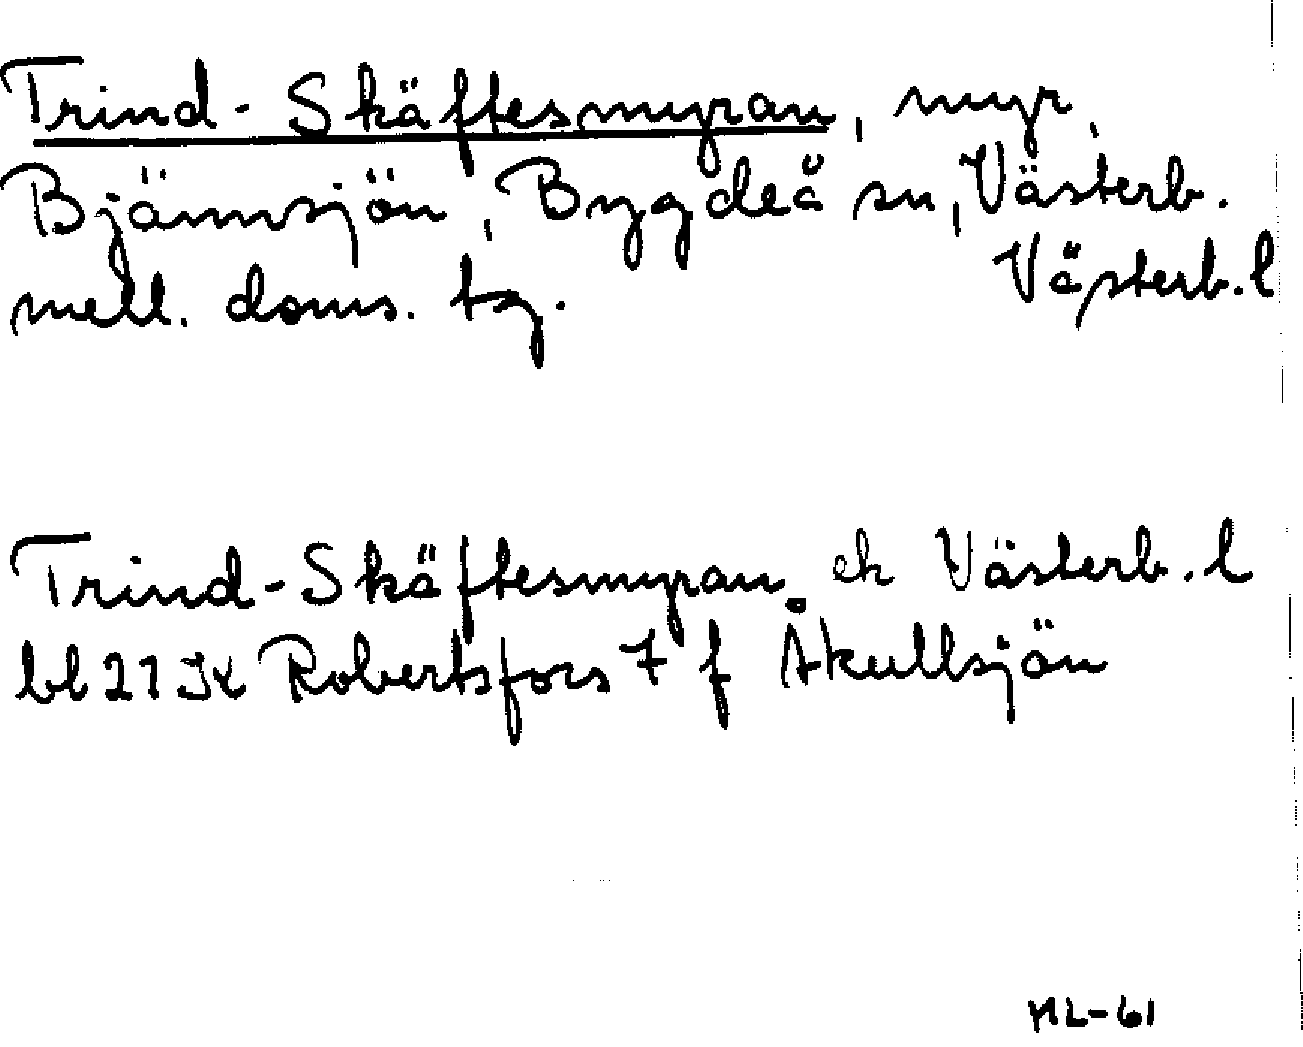 Trind-Skäftesmyran, myr,
Bjännsjön, Bygdeå sn, Västerb.
mell. doms. tg. Västerb. l
Trind-Skäftesmyran ek Västerb. l
bl 21 K Robertsfors 7 f Åkullsjön
ML-61